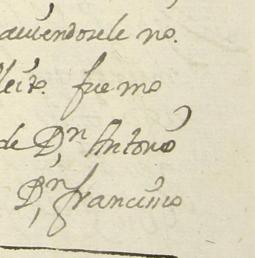 auiendosele no.
leito. fue mo
de D.n Antonio
D.n francisco